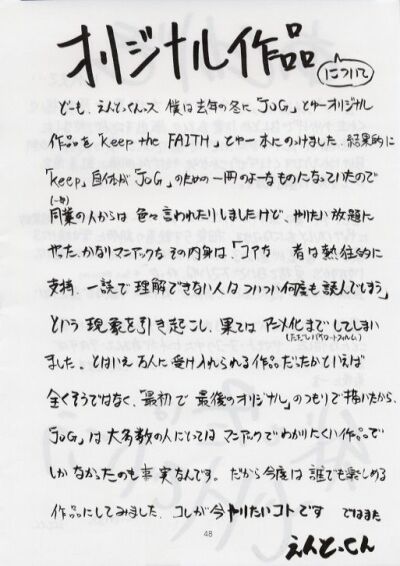 オリジナル作品
について
ども、えんどくんス 僕は去年の冬に「JOG」とゆーオリジナル
作品を「Keep the FAITH」とゆー本にのけました。結果的に
「keep」自体が「JOG」のための一冊のよーなものになっていたので
同業の人からは 色々言われたりしましたけど、やりたい放題に
やった、かなりマニアックな その内身は、「コアな 者は熱狂的に
支持、一読で理解できない人はついつい何度も読んでしまう」
という現象を引き起こし、果ては アニメ化までしてしまい
(ただしパイロットフィルム)
ました。とはいえ万人に受け入れられる作品だったかといえば
全くそうではなく、「最初で最後のオリジナル」のつもりで描いたから、
「JOG」は大多数の人にとっては マニアックでわかりにくい作品で
しかなかったのも事実なんです。だから今度は 誰でも楽しめる
作品にしてみました、コレが今やりたいコトです ではまた
48
えんど